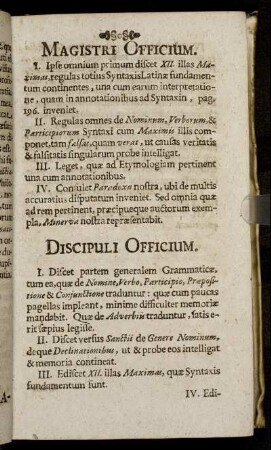 MAGISTRI OFFICIUM.
I. Ipse omnium primum discet XII. illas Ma-
ximas, regulas totius Syntaxis Latinæ fundamen-
tum continentes, una cum earum interpretatio-
ne, quam in annotationibus ad Syntaxin, pag.
196. inveniet.
II. Regulas omnes de Nominum, Verborum, &
Participiorum Syntaxi cum Maximis illis com-
ponet, tam falsas, quam veras, ut causas veritatis
& falsitatis singularum probe intelligat.
III. Leget, quæ ad Etymologiam pertinent
una cum annotationibus.
IV. Consulet Paradoxa nostra, ubi de multis
accuratius disputatum inveniet. Sed omnia quæ
ad rem pertinent, præcipueque auctorum exem-
pla, Minerva nostra repræsentabit.
DISCIPULI OFFICIUM.
I. Discet partem generalem Grammaticæ,
tum ea, quæ de Nomine, Verbo, Participio, Præposi-
tione & Conjunctione traduntur: quæ cum paucas
pagellas impleant, minimo difficulter memoriæ
mandabit. Quæ de Adverbiis traduntur, satis e-
rit sæpius legisse.
II. Discet versus Sanctii de Genere Nominum,
deque Declinationibus, ut & probe eos intelligat
& memoria contineat.
III. Ediscet XII. illas Maximas, quæ Syntaxis
fundamentum sunt.
IV. Edi-